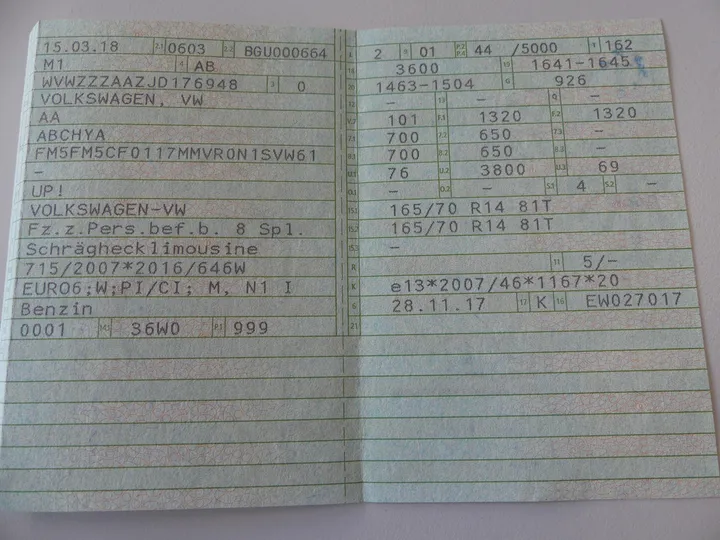 15.03.18 2.1 0603 2.2 BGU000664
M1 4 AB
WVWZZZAAZJD176948 3 0
VOLKSWAGEN, VW
AA
ABCHYA
FM5FM5CF0117MMVR0N1SVW61
–
UP!
VOLKSWAGEN-VW
Fz.z.Pers.bef.b. 8 Spl.
Schräghecklimousine
715/2007*2016/646W
EURO6;W;PI/CI; M, N1 I
Benzin
0001 36W0 P.1 999
2 01 P.2 P.4 44 /5000 T 162
3600 1641-1645
1463-1504 G 926
– – Q –
101 F.1 1320 F.2 1320
700 7.2 650 7.3 –
700 8.2 650 –
76 U.2 3800 U.3 69
– O.2 – S.1 4 S.2 –
15.1 165/70 R14 81T
15.2 165/70 R14 81T
15.3 –
R 11 5/–
K e13*2007/46*1167*20
6 28.11.17 17 K 16 EW027017
21